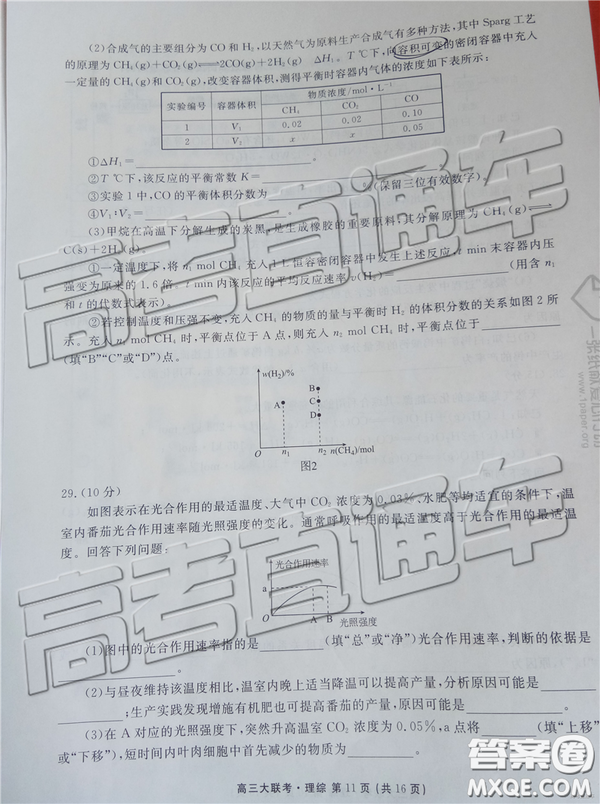 (2)合成气的主要组分为CO和H₂,以天然气为原料生产合成气有多种方法,其中Sparg工艺
的原理为CH₄(g)+CO₂(g)⇌2CO(g)+2H₂(g) ΔH₁。T℃下,向容积可变的密闭容器中充入
一定量的CH₄(g)和CO₂(g),改变容器体积,测得平衡时容器内气体的浓度如下表所示:
实验编号 容器体积 物质浓度/mol·L⁻¹
CH₄ CO₂ CO
1 V₁ 0.02 0.02 0.10
2 V₂ x x 0.05
①ΔH₁=
②T℃下,该反应的平衡常数K=
③实验1中,CO的平衡体积分数为 %(保留三位有效数字)。
④V₁∶V₂=
(3)甲烷在高温下分解生成的炭黑,是生成橡胶的重要原料,其分解原理为CH₄(g)⇌
C(s)+2H₂(g)。
①一定温度下,将n₁ mol CH₄充入1 L恒容密闭容器中发生上述反应,t min末容器内压
强变为原来的1.6倍。t min内该反应的平均反应速率v(H₂)= (用含n₁
和t的代数式表示)。
②若控制温度和压强不变,充入CH₄的物质的量与平衡时H₂的体积分数的关系如图2所
示。充入n₁ mol CH₄时,平衡点位于A点,则充入n₂ mol CH₄时,平衡点位于
(填“B”“C”或“D”)点。
w(H₂)/%
B
A C
D
O n₁ n₂ n(CH₄)/mol
图2
29.(10分)
如图表示在光合作用的最适温度、大气中CO₂浓度为0.03%、水肥等均适宜的条件下,温
室内番茄光合作用速率随光照强度的变化。通常呼吸作用的最适温度高于光合作用的最适温
度。回答下列问题:
光合作用速率
a
O A B 光照强度
(1)图中的光合作用速率指的是 (填“总”或“净”)光合作用速率,判断的依据是
(2)与昼夜维持该温度相比,温室内晚上适当降温可以提高产量,分析原因可能是
;生产实践发现增施有机肥也可提高番茄的产量,原因可能是
(3)在A对应的光照强度下,突然升高温室CO₂浓度为0.05%,a点将 (填“上移”
或“下移”),短时间内叶肉细胞中首先减少的物质为
高三大联考·理综 第11页(共16页)
高考直通车
高考直通车
答案圈
MXQE.COM
www.1paper.net